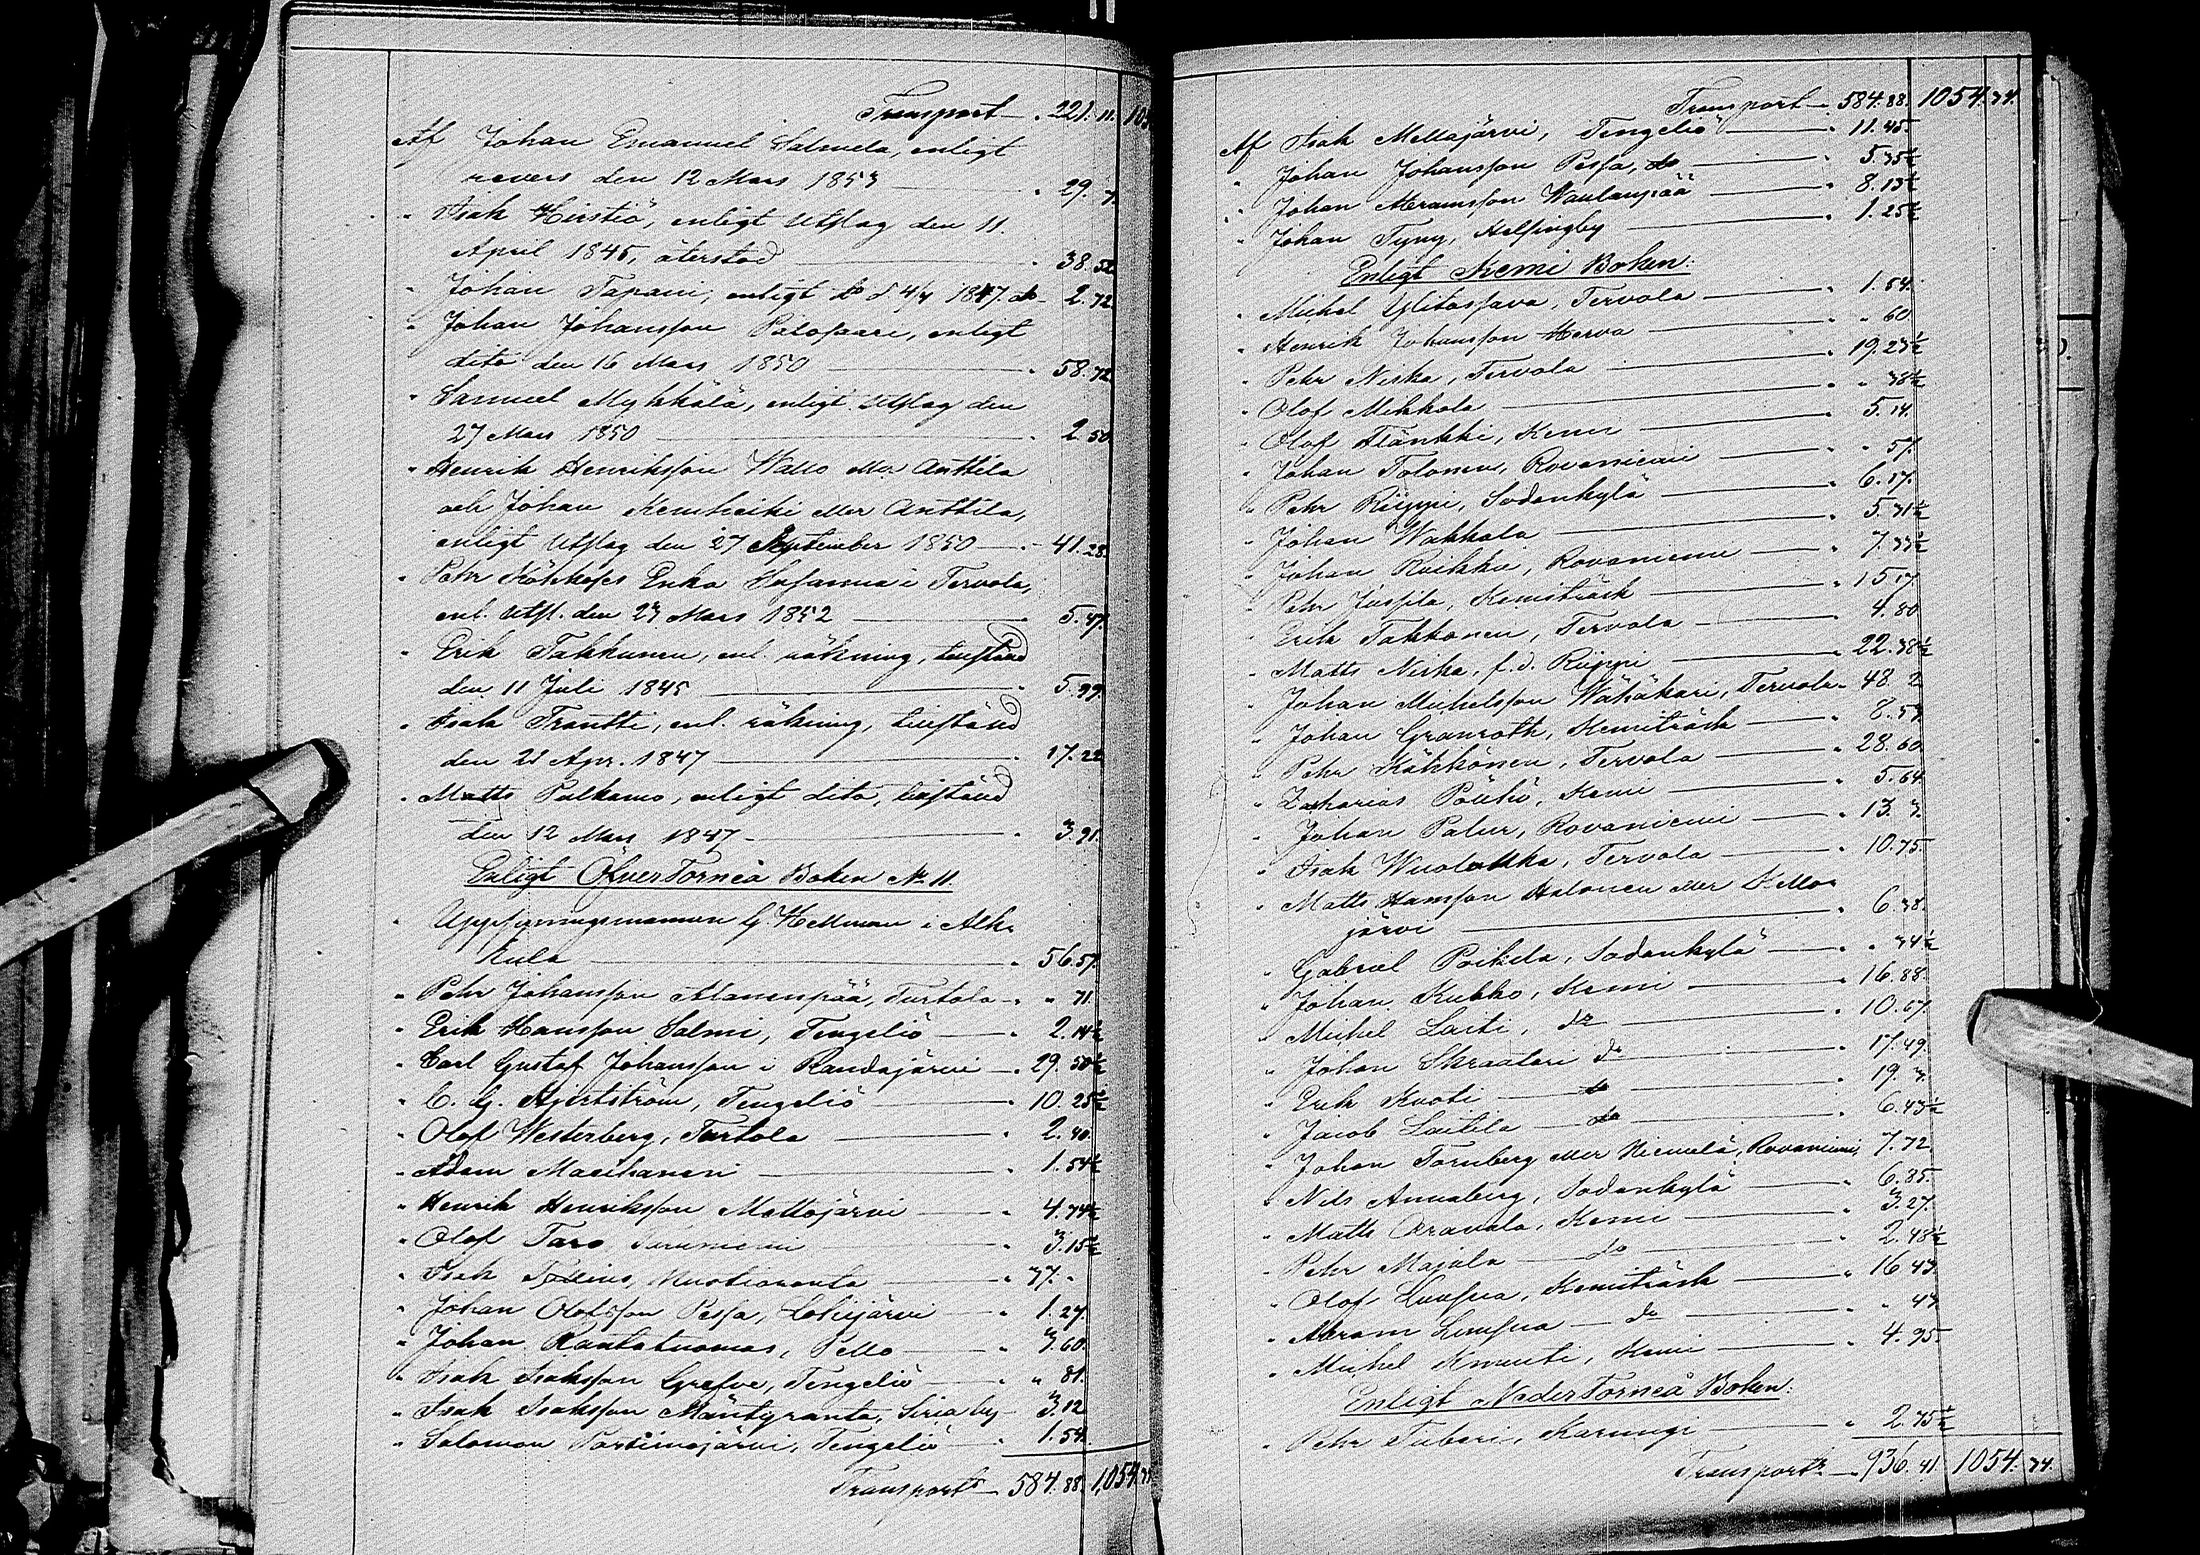 Transport — . 221. 11.
Af Johan Emanuel Salmela, enligt
revers den 12 Mars 1853 — " 29. 7.
" Isak Hirstiö, enligt Utslag den 11.
April 1845, återstod — . 38. 52
" Johan Tapani, enligt do d 4/4 1847. do — 2. 72
" Johan Johansson Palopari, enligt
dito den 16 Mars 1850 — . 58. 72
" Samuel Mykkälä, enligt Utslag den
27 Mars 1850 — . 2. 50
" Henrik Henriksson Wallo eller Anttila
och Johan Kemiheiki eller Anttila,
enligt Utslag den 27 September 1850 — . 41. 28.
" Pehr Köhköses Enka Susanna i Tervola,
enl. Utsl. den 23 Mars 1852 — 5. 47.
" Erik Takkunen, enl. räkning,
den 11 Juli 1845 — . 5. 99.
" Isak Trantti, enl. räkning,
den 21 Apr. 1847 — . 17. 22
" Matts Palkamo, enligt dito,
den 12 Mars 1847 — . 3. 91.
Enligt ÖfverTorneå Boken No 11.
" Uppsyningsmannen G. Hellman i Alk-
kula — . 56. 57.
" Pehr Johansson Alanenpää, Turtola — . " 71.
" Erik Hansson Salmi, Tengeliö — . 2. 14½
" Carl Gustaf Johansson i Raudajärvi — . 29. 50½
" C. G. Hjertström, Tengeliö — . 10. 25½
" Olof Westerberg, Turtola — . 2. 40.
" Adam — . 1. 54½
" Henrik Henriksson Mellajärvi — . 4. 74½
" Olof Taro — . 3. 15½
" Isak — . 37. "
" Johan Olofsson Pessa, Lohijärvi — . 1. 27.
" Johan Rantatuomas, Pello — . 3. 60.
" Isak Isaksson Grefve, Tengeliö — . " 81.
" Isak Isaksson Mäntyranta, — 3. 12
" Salomon Portimojärvi, Tengeliö — . 1. 54.
Transport — 584. 88. 1,054.
Transport — . 584. 88. 1054. 74.
Af Isak Mellajärvi, Tengeliö — . 11. 45.
" Johan Johansson Pessa, do — . 5. 35½
" Johan Abramsson Waulanpää — . 8. 13½
" Johan Tyny, Helsingby — . 1. 25½
Enligt Kemi Boken:
" Michel Ylitossava, Tervola — . 1. 54.
" Henrik Johansson Herva — . " 60
" Pehr Niska, Tervola — . 19. 23½
" Olof Mikkola — . " 38½
" Olof Flänkki, Kemi — . 5. 14.
" Johan Tolonen, Rovaniemi — . " 57.
" Pehr Riippi, Sodankylä — . 6. 17.
" Johan Wakkala — . 5. 31½
" Johan Ruikkie, Rovaniemi — . 7. 33½
" Pehr Jussila, Kemiträsk — . 15 17.
" Erik Takkonen, Tervola — . 4. 80
" Matts Niska, f.d. Riippi — . 22. 38½
" Johan Michelsson Wähäkari, Tervola — 48. 2
" Johan Granroth, Kemiträsk — . 8. 57.
" Pehr Köhkönen, Tervola — . 28. 60
" Zakarias Pöukö, Kemi — . 5. 64
" Johan Palur, Rovaniemi — . 13. 3.
" Isak Wuolukka, Tervola — . 10. 75.
" Matts Hansson Halonen eller Kello-
järvi — . 6. 38.
" Gabriel Poikela, Sodankylä — . " 34½
" Johan Kukko, Kemi — . 16. 88.
" Michel Laiti, do — . 10. 67.
" Johan Skraatari do — . 17. 49.
" Erik Kooti — do — . 19. 3.
" Jacob Laitila — do — . 6. 43½
" Johan Tornberg eller Niemelä, Rovaniemi, 7. 72.
" Nils Annaberg, Sodankylä — . 6. 85.
" Matts Aravala, Kemi — . 3. 27.
" Pehr Majala — do — . 2. 48½
" Olof Luusua, Kemiträsk — . 16. 43.
" Abram Luusua — do — . " 43.
" Michel Knuuti, Kemi — . 4. 95.
Enligt NederTorneå Boken:
" Pehr Tuberi, Karungi — . 2. 75½
Transport — 936. 41 1054. 74.